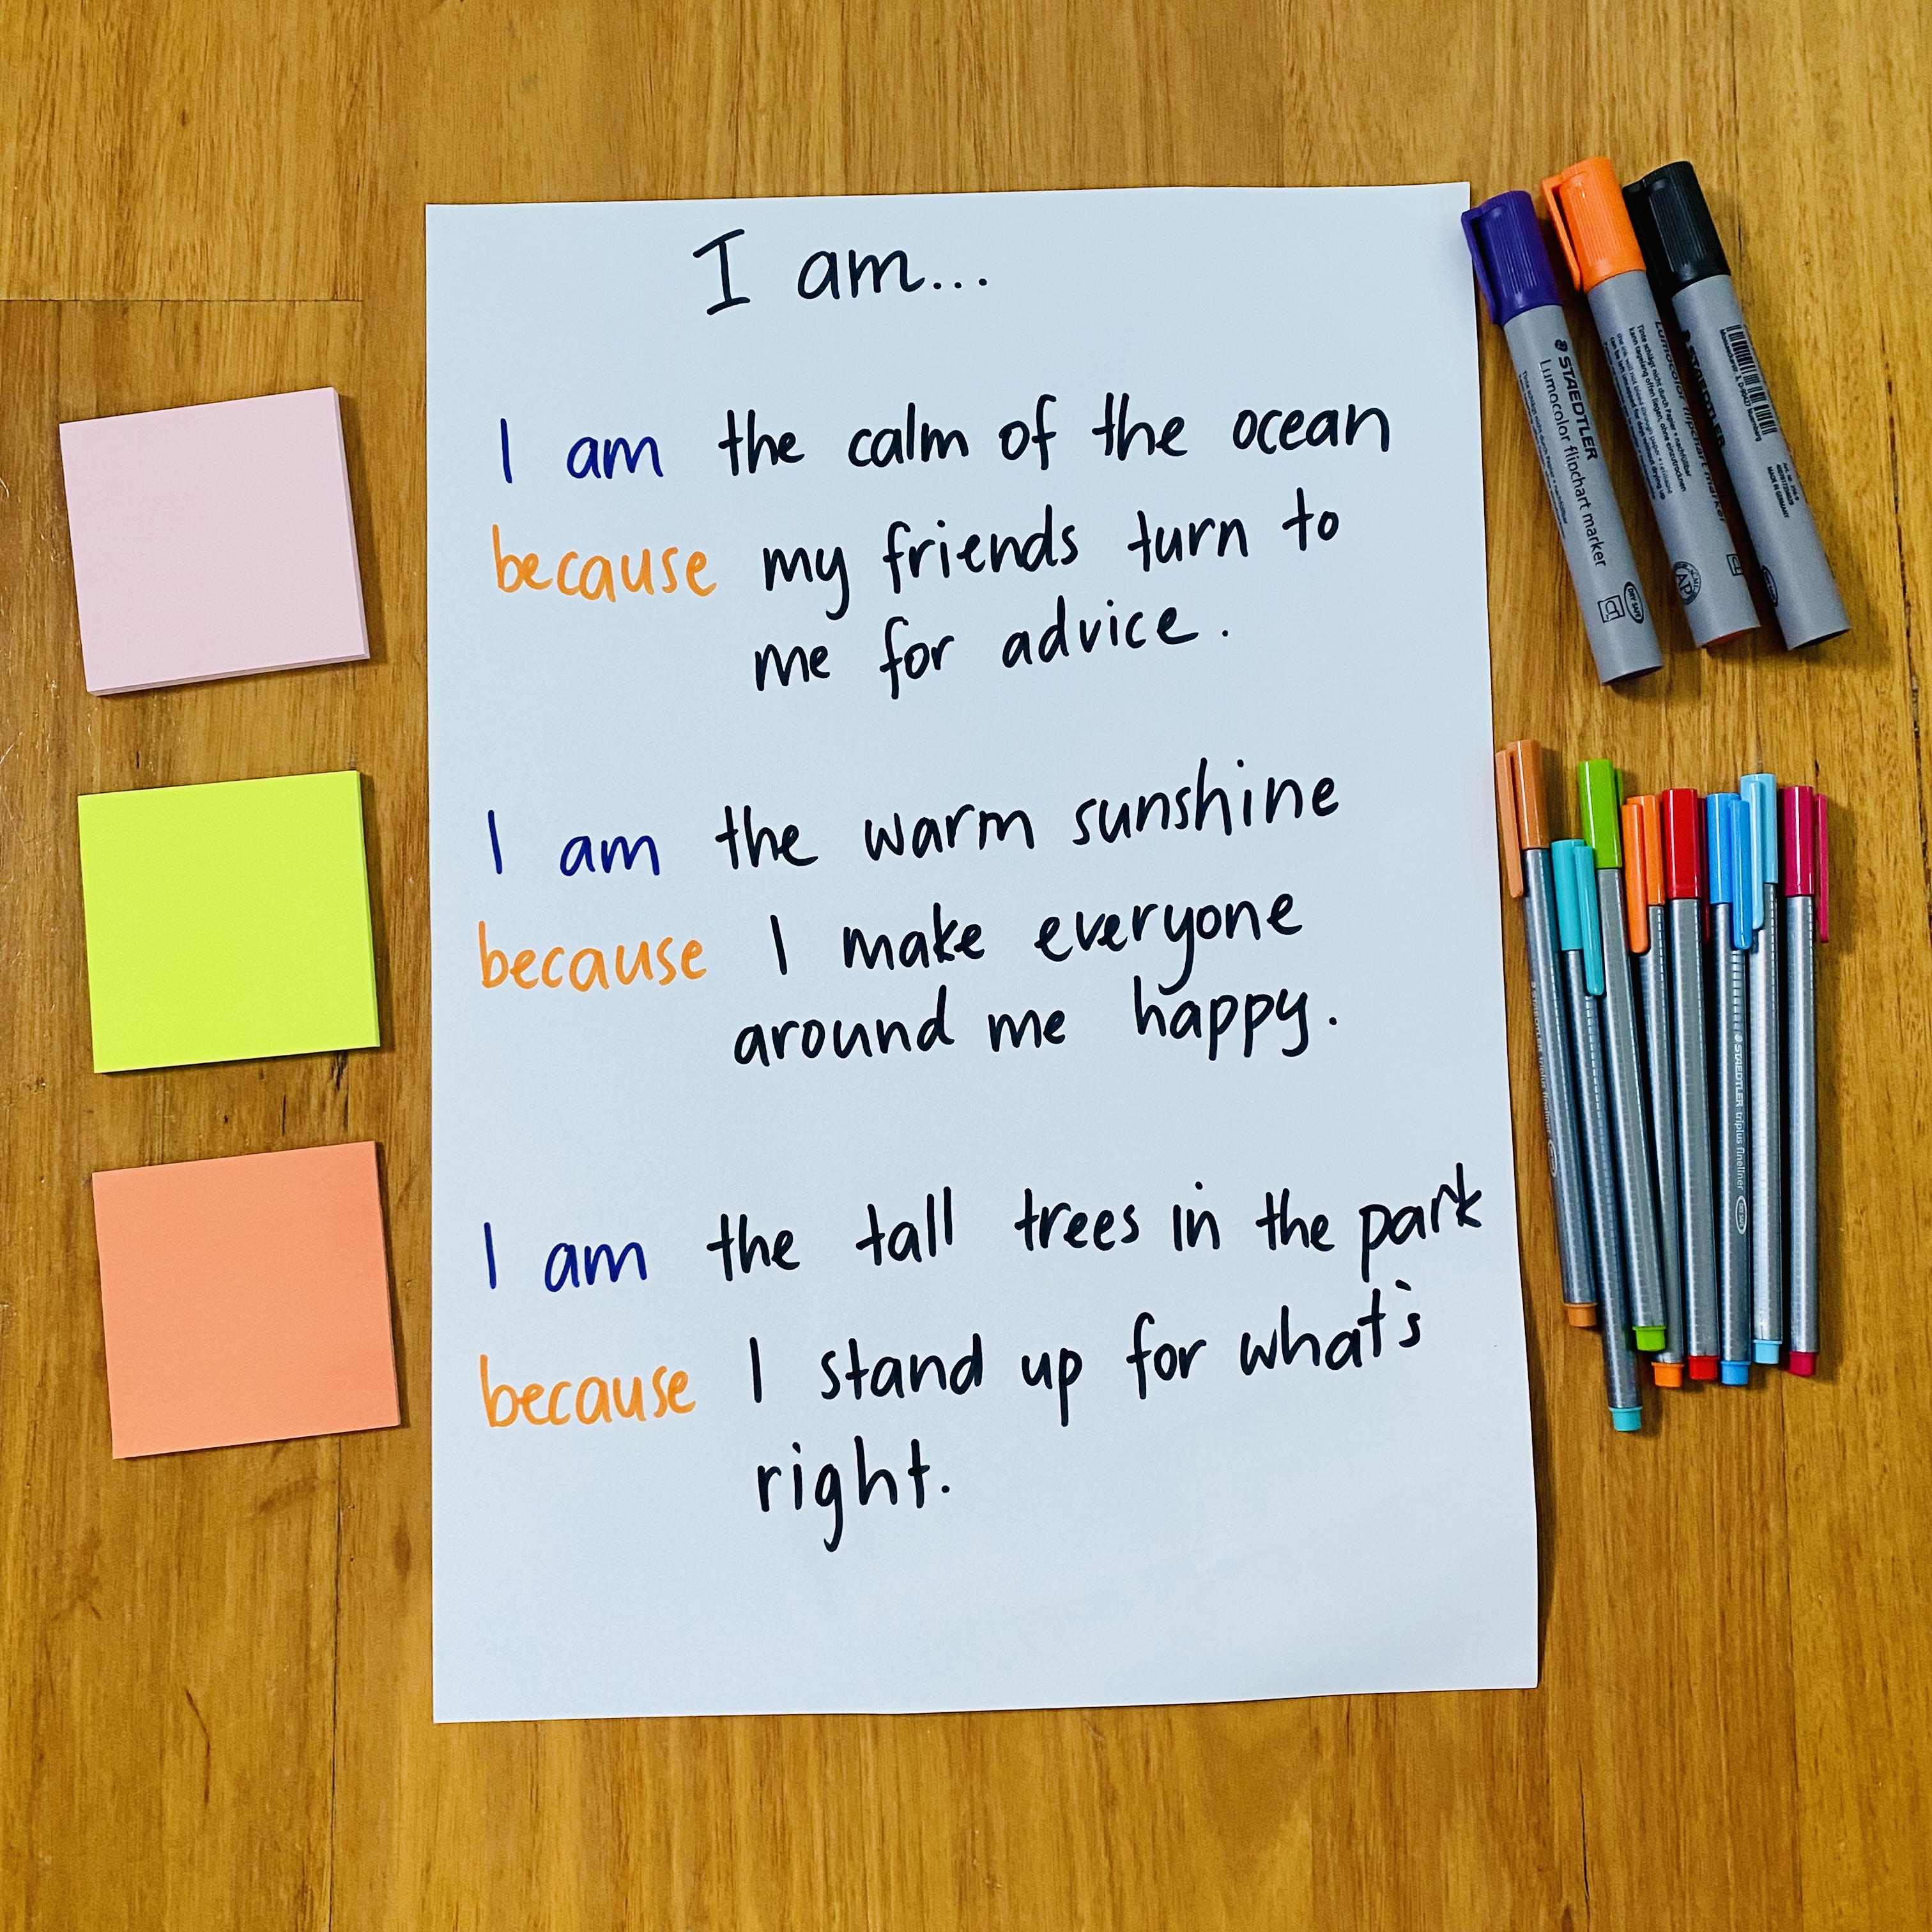 I am...
I am the calm of the ocean
because my friends turn to
me for advice.
I am the warm sunshine
because I make everyone
around me happy.
I am the tall trees in the park
because I stand up for what's
right.
STAEDTLER
Lumocolor flipchart marker
Lumocolor flipchart marker
STAEDTLER
MADE IN GERMANY
STAEDTLER triplus fineliner
STAEDTLER triplus fineliner